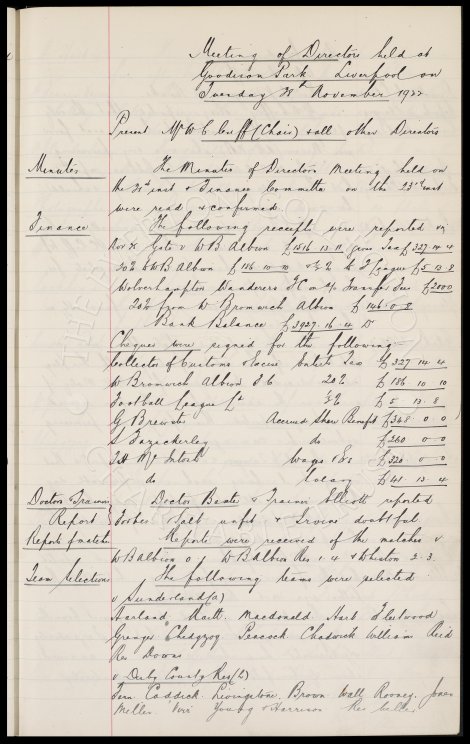 Meeting of Directors held at
Goodison Park Liverpool on
Tuesday 28th November 1922
Present Mr W C Cuff (Chair) & all other Directors
Minutes The Minutes of Directors Meeting held on
the 21st inst & Finance Committee on the 23rd inst
were read & confirmed
Finance The following receipts were reported
Nov Gate v W B Albion £1516. 13. 11 gross Tax £327. 14. 4
20% to W B Albion £186. 10. 10 & ½% to F League £5. 13. 8
Wolverhampton Wanderers F C on a/c Transfer Fees £2000
20% from W Bromwich Albion £146. 0. 8
Bank Balance £3927. 16. 4 D
Cheques were signed for the following:-
Collector of Customs & Excise Entert Tax £327 14 4
W Bromwich Albion F C 20% £186 10 10
Football League Ld ½% £5 13. 8
G Brewster Accrued Share Benefit £348. 0 0
S Fazackerley do £260 0 0
T H McIntosh Wages &c £320 0 0
do Salary £41 13 4
Doctors & Trainers Report Doctor Baxter & Trainer Elliott reported
Forbes & Salt unfit & Irvine doubtful
Reports of matches Reports were received of the matches v
W B Albion 0. 1. W B Albion Res 1. 4 & Whiston 2. 3.
Team Selection The following teams were selected
v Sunderland (a)
Harland Raitt. Macdonald Hart Fleetwood
Grenyer Chedgzoy Peacock Chadwick William Reid
Res Downs
v Derby County Res (h)
Fern Caddick. Livingstone. Brown Wall Rooney. Jones
Miller Virr Young & Harrison Res